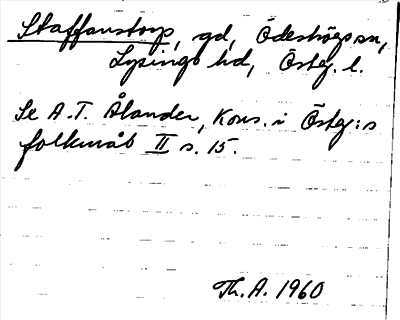 Staffanstorp, gd, Ödeshögs sn,
Lysings hd, Östg. l.
Se A.T. Ålander, Kons. i Östg:s
folkmål II s. 15.
Th. A. 1960